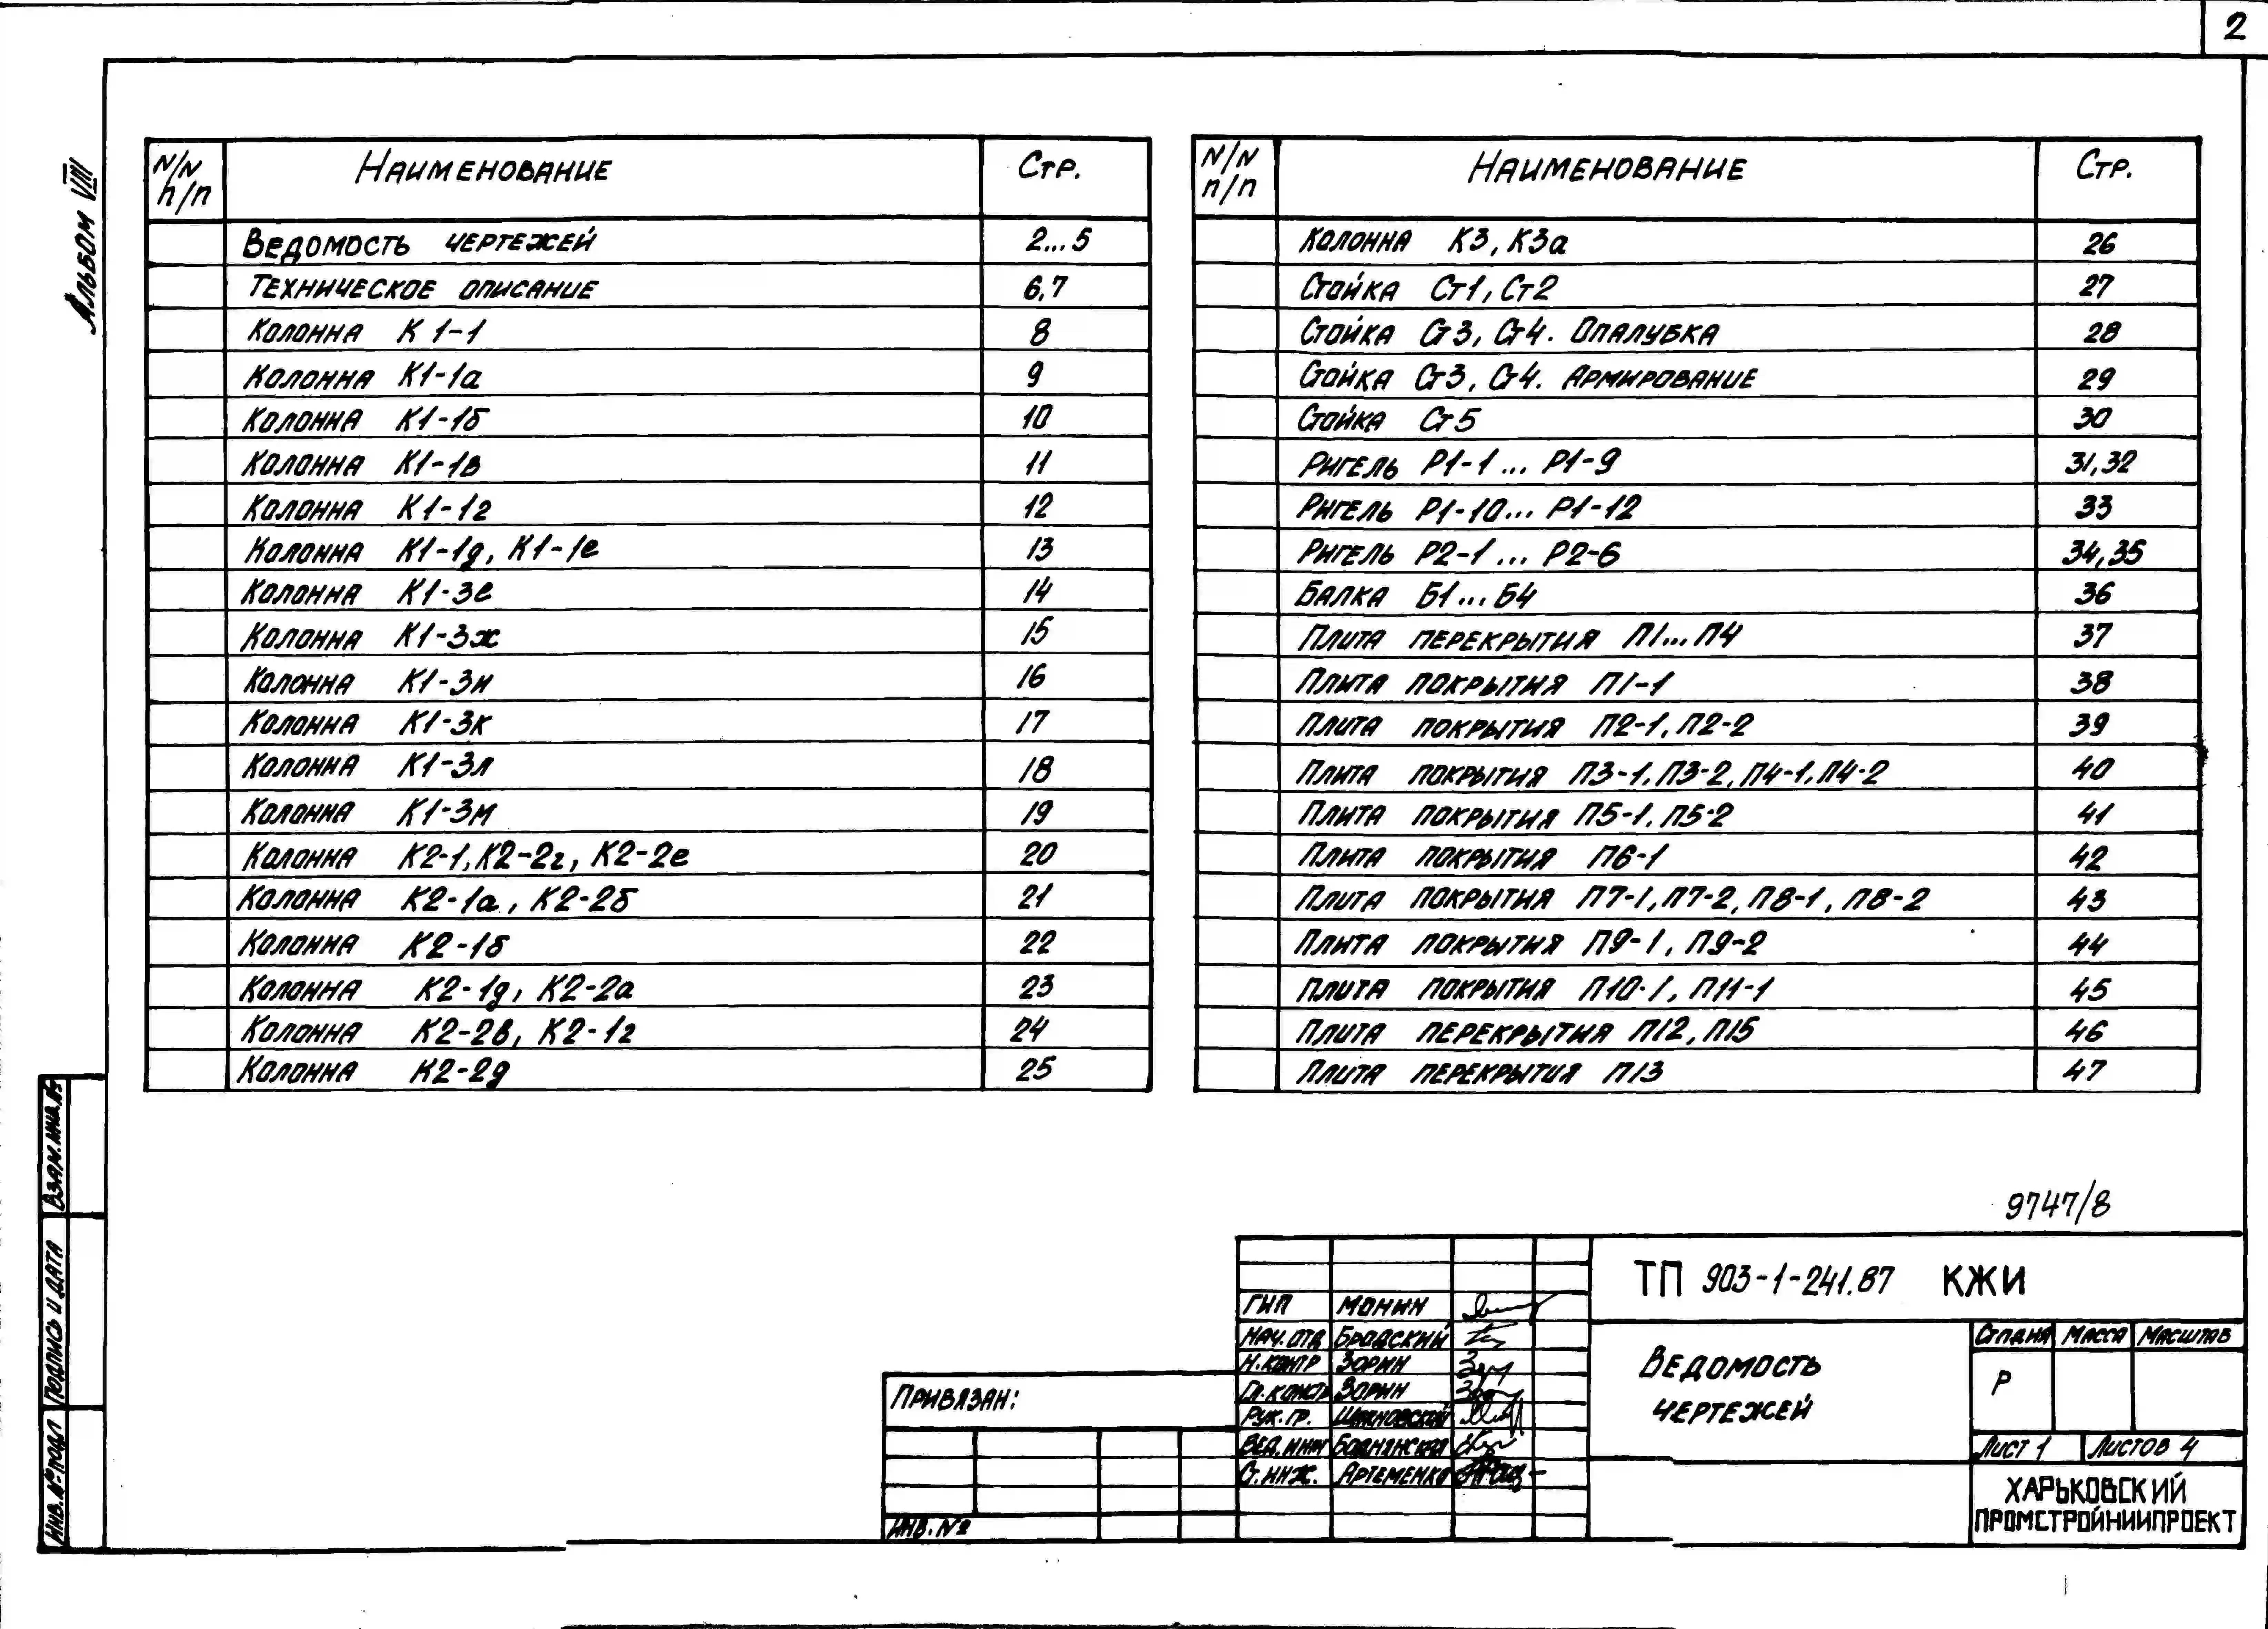 2
Альбом VIII
N/N п/п Наименование Стр.
Ведомость чертежей 2...5
Техническое описание 6,7
Колонна К 1-1 8
Колонна К1-1а 9
Колонна К1-1б 10
Колонна К1-1в 11
Колонна К1-1г 12
Колонна К1-1д, К1-1е 13
Колонна К1-3е 14
Колонна К1-3ж 15
Колонна К1-3и 16
Колонна К1-3к 17
Колонна К1-3л 18
Колонна К1-3м 19
Колонна К2-1, К2-2г, К2-2е 20
Колонна К2-1а, К2-2б 21
Колонна К2-1б 22
Колонна К2-1д, К2-2а 23
Колонна К2-2в, К2-1г 24
Колонна К2-2д 25
N/N п/п Наименование Стр.
Колонна К3, К3а 26
Стойка Ст1, Ст2 27
Стойка Ст3, Ст4. Опалубка 28
Стойка Ст3, Ст4. Армирование 29
Стойка Ст5 30
Ригель Р1-1... Р1-9 31,32
Ригель Р1-10... Р1-12 33
Ригель Р2-1... Р2-6 34,35
Балка Б1...Б4 36
Плита перекрытия П1...П4 37
Плита покрытия П1-1 38
Плита покрытия П2-1, П2-2 39
Плита покрытия П3-1, П3-2, П4-1, П4-2 40
Плита покрытия П5-1, П5-2 41
Плита покрытия П6-1 42
Плита покрытия П7-1, П7-2, П8-1, П8-2 43
Плита покрытия П9-1, П9-2 44
Плита покрытия П10-1, П11-1 45
Плита перекрытия П12, П15 46
Плита перекрытия П13 47
9747/8
ТП 903-1-241.87 КЖИ
ГИП Монин
Нач. отд Бродский
Н.контр Зорин
Гл.констр Зорин
Рук. гр. Шановский
Вед. инж Боднянская
Ст. инж. Артеменко
Привязан:
Инв. №
Ведомость
чертежей
Стадия Масса Масштаб
Р
Лист 1 Листов 4
ХАРЬКОВСКИЙ
ПРОМСТРОЙНИИПРОЕКТ
Инв. № подл Подпись и дата Взам. инв. №